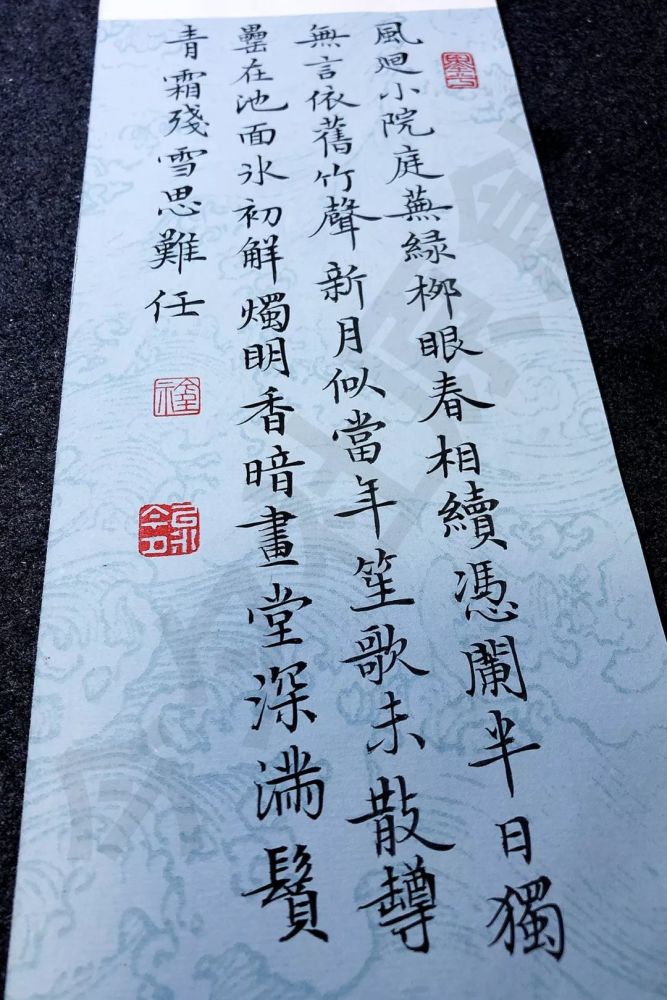 風迴小院庭蕪綠柳眼春相續憑闌半日獨
無言依舊竹聲新月似當年笙歌未散罇
罍在池面冰初解燭明香暗畫堂深滿鬢
青霜殘雪思難任